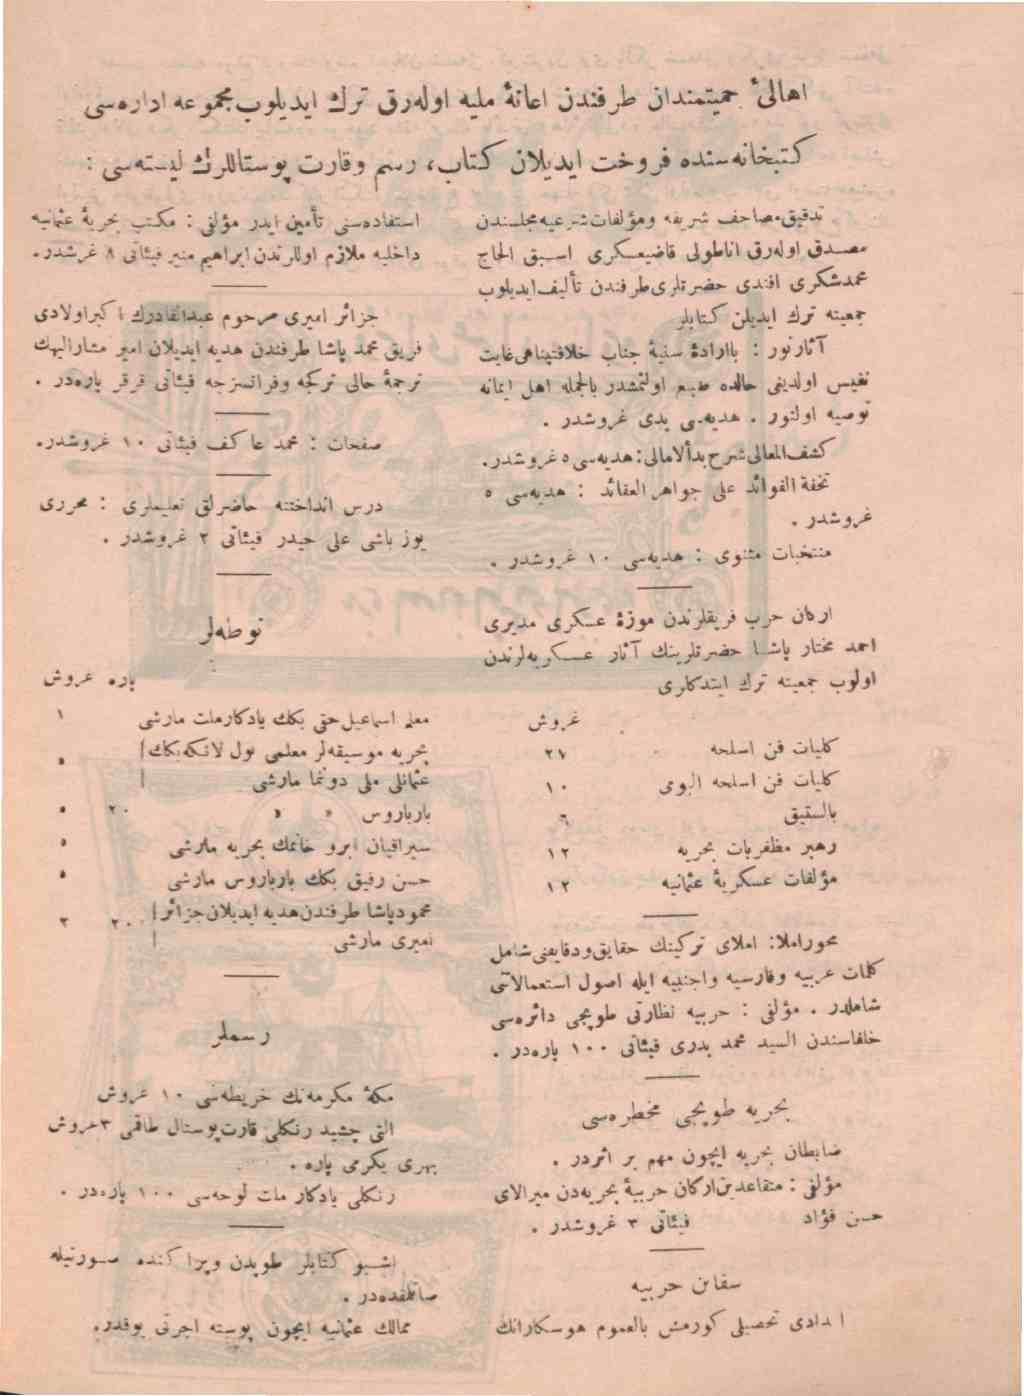 اهالئ حميتمندان طرفندن اعانهٔ مليه اوله‌رق ترك ايديلوب مجموعه اداره‌سى
كتبخانه‌سنده فروخت ايديلان كتاب، رسم وقارت پوستاللرڭ ليسته‌سى :
تدقيق مصاحف شريفه ومؤلفات شرعيه مجلسندن
مصدق اوله‌رق اناطولى قاضيعسكرى اسبق الحاج
محمدشكرى افندى حضرتلرى طرفندن تأليف ايديلوب
جمعيته ترك ايديلن كتابلر
آثارنور : باارادهٔ سنيهٔ جناب خلافتپناهى غايت
نفيس اولديغى حالده طبع اولنمشدر بالجمله اهل ايمانه
توصيه اولنور . هديه‌سى يدى غروشدر .
كشف‌المعالى شرح بدأالامالى: هديه‌سى ٥ غروشدر.
تحفة الفوائد على جواهر العقائد : هديه‌سى ٥
غروشدر .
منتخبات مثنوى : هديه‌سى ١٠ غروشدر .
اركان حرب فريقلرندن موزهٔ عسكرى مديرى
احمد مختار پاشا حضرتلرينك آثار عسكريه‌لرندن
اولوب جمعيته ترك ايتدكلرى
غروش
كليات فن اسلحه ٢٧
كليات فن اسلحه البومى ١٠
بالستيق ٦
رهبر مظفريات بحريه ١٢
مؤلفات عسكريهٔ عثمانيه ١٢
محوراملا: املاى تركينك حقايق ودقايقنى شامل
كلمات عربيه وفارسيه واجنبيه ايله اصول استعمالاتنى
شاملدر . مؤلفى : حربيه نظارتى طوپجى دائره‌سى
خلفاسندن السيد محمد بدرى فيئاتى ١٠٠ پاره‌در .
بحريه طوپجى مخطره‌سى
ضابطان بحريه ايچون مهم بر اثردر .
مؤلفى : متقاعدين اركان حربيهٔ بحريه‌دن ميرالاى
حسن فؤاد فيئاتى ٣ غروشدر .
سفائن حربيه
اعدادى تحصيلى كورمش بالعموم هوسكارانك
استفاده‌سنى تأمين ايدر مؤلفى : مكتب بحريهٔ عثمانيه
داخليه ملازم اوللرندن ابراهيم منير فيئاتى ٨ غرشدر.
جزائر اميرى مرحوم عبدالقادرك اكبراولادى
فريق محمد پاشا طرفندن هديه ايديلان امير مشاراليهك
ترجمهٔ حالى تركجه وفرانسزجه فيئاتى قرقر پاره‌در .
صفحات : محمد عاكف فيئاتى ١٠ غروشدر.
درس انداختنه حاضرلق تعليملرى : محررى
يوزباشى على حيدر فيئاتى ٢ غروشدر .
نوطه‌لر
پاره غروش
معلم اسماعيل حقى بكك يادكارملت مارشى ١
بحريه موسيقه‌لر معلمى پول لانكه‌بكك
عثمانلى ملى دونما مارشى ٥
بارباروس » » ٢٠ ٥
سيراقيان ابرو خانمك بحريه مارشى ٥
حسن رفيق بكك بارباروس مارشى ٥
محمودپاشا طرفندن هديه ايديلان جزائر ٢٠ ٣
اميرى مارشى
رسملر
مكهٔ مكرمه‌نك خريطه‌سى ١٠ غروش
التى چشيد رنكلى قارت پوستال طاقمى ٣ غروش
بهرى يكرمى پاره .
رنكلى يادكار ملت لوحه‌سى ١٠٠ پاره‌در .
اشبو كتابلر طوپدن وپراكنده صورتيله
صاتلمقده‌در .
ممالك عثمانيه ايچون پوسته اجرتى يوقدر.